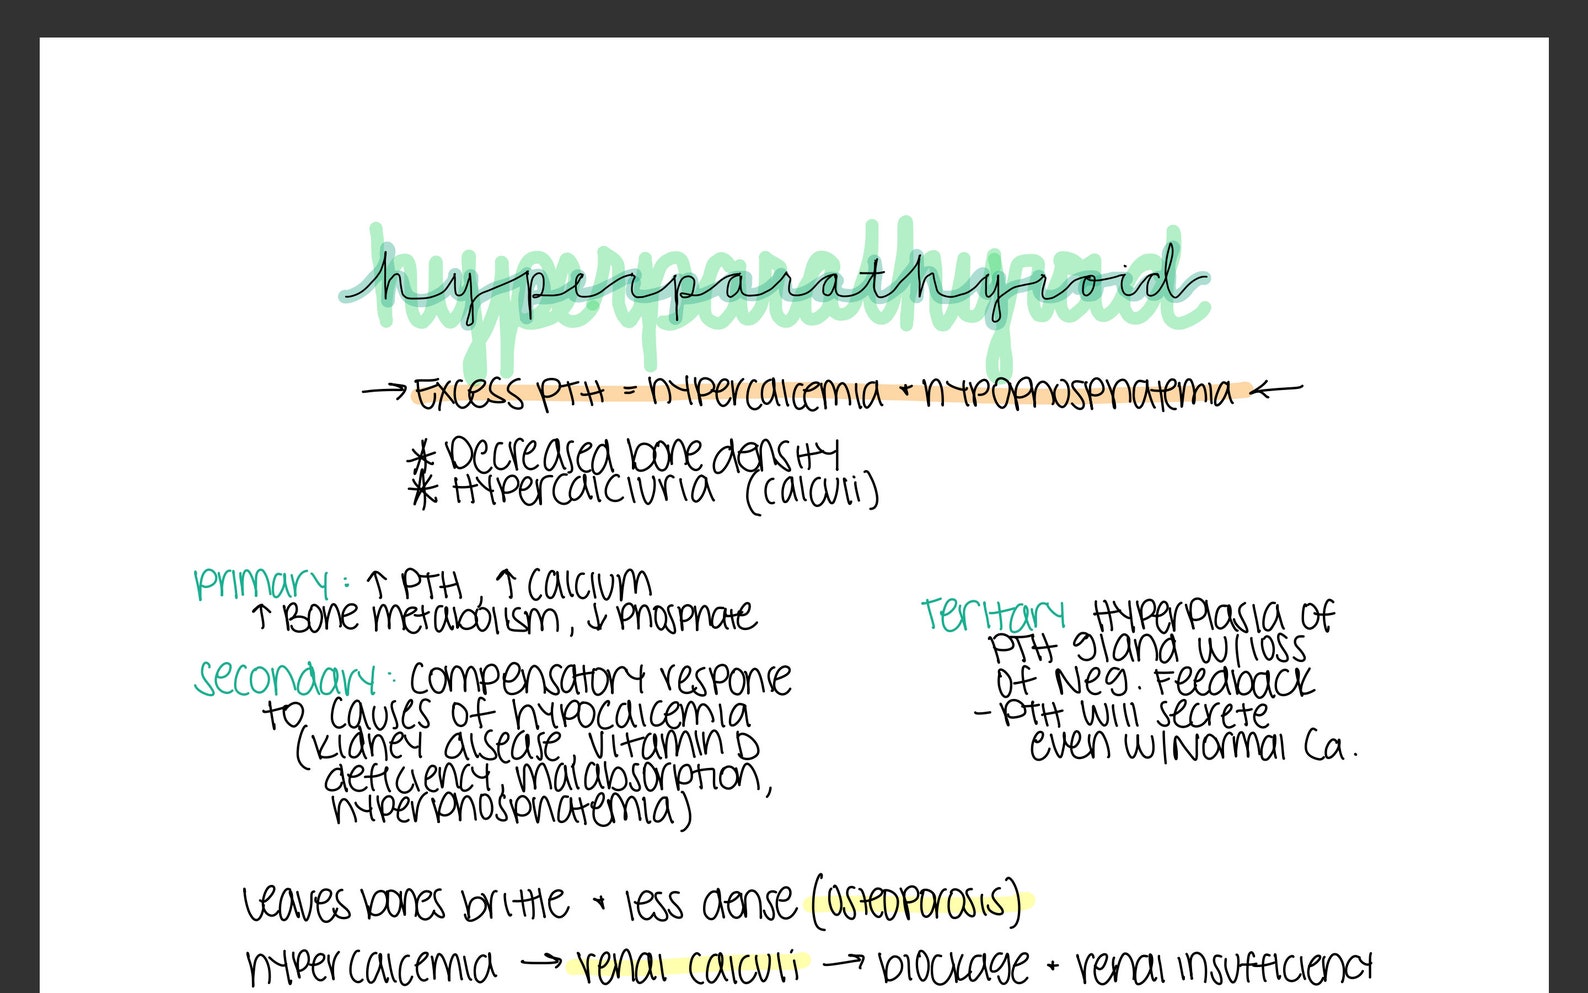 hyperparathyroid
→ Excess PTH = hypercalcemia + hypophosphatemia ←
* Decreased bone density
* Hypercalciuria (calculi)
Primary: ↑ PTH, ↑ Calcium
↑ Bone metabolism, ↓ phosphate
Secondary: compensatory response
to causes of hypocalcemia
(kidney disease, vitamin D
deficiency, malabsorption,
hyperphosphatemia)
Teritary Hyperplasia of
PTH gland w/loss
of Neg. Feedback
- PTH will secrete
even w/Normal Ca.
Leaves bones brittle + less dense (osteoporosis)
hypercalcemia → renal calculi → blockage + renal insufficiency